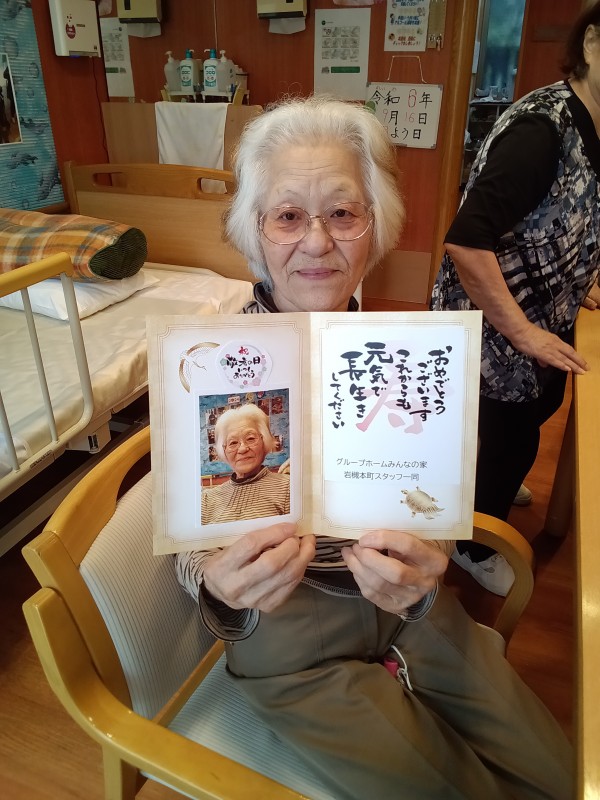 令和6年
9月16日
よう日
祝
敬老の日
いつも
ありがとう
おめでとう
ございます
これからも
元気で
長生き
してください
寿
グループホームみんなの家
岩槻本町スタッフ一同